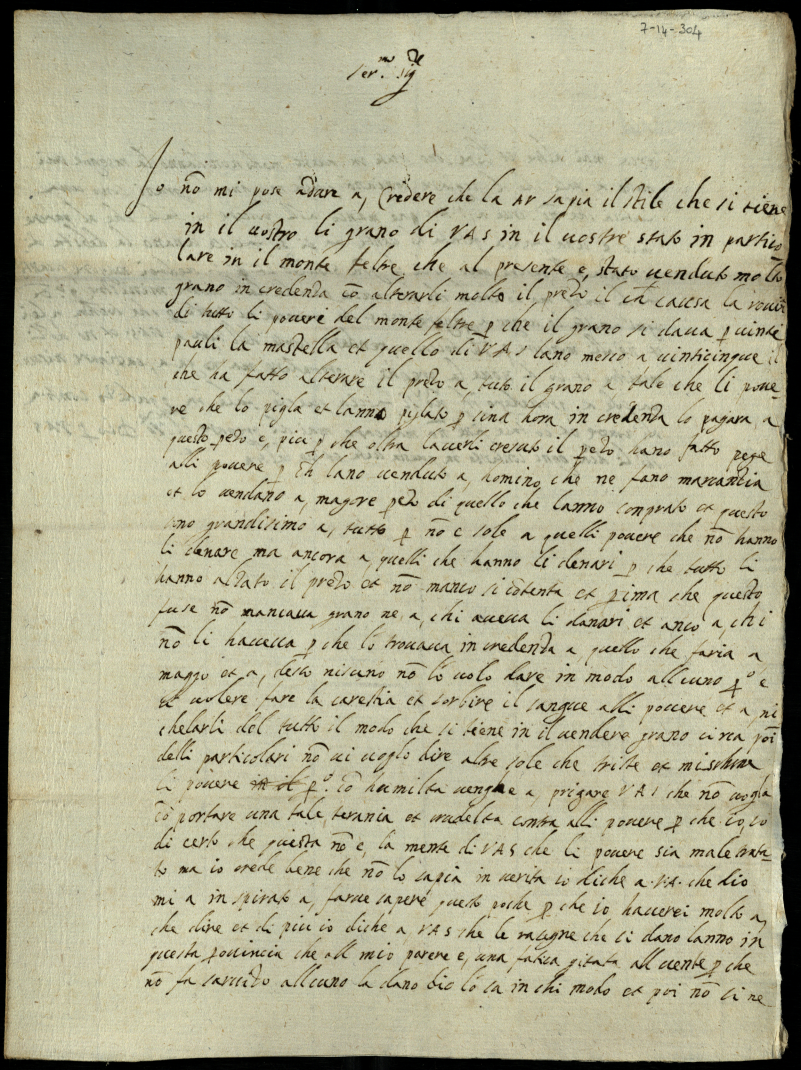 7-14-304
Ser.mo Sig.re
Io nõ mi pose adare a, Credere che la AV sapia il stile che si tiene
in il vostro li grano di VAS in il vostre stato in partico
lare in il monte feltre che al presente e, stato venduto molto
grano in credenda cõ alterarli molto il preto il ch̃ causa la rovi
di tutto li povere del monte feltre p che il grano si dava p vinte
pauli la mastella et quello di VAS lano meso a vinticinque il
che ha fatto alterare il preto a, tuto il grano a tale che li pove
re che lo pigla et lanno piglato p sina hora in credenda lo pagara a
questo peto e, piu p che oltra laverli cresuto il peto hano fatto pege
alli povere p ch̃ lano venduto a, homino che ne fano marcantia
et lo vendano a, magore peto di quello che lanno conprato et questo
ono grandisimo a, tutto p nõ e sole a quelli povere che nõ hanno
li denare ma ancora a, quelli che hanno li denari p che tutto li
hanno altato il preto et nõ manco si cõtenta et pima che questo
fuse nõ mancava grano ne a, chi aveva li danari et anco a, chi
nõ li haveva p che lo trovava in credenda a quello che faria a
maggo et a, desto nisuno nõ lo volo dare in modo alcuno po e
et volere fare la carestia et sorbire il sangue alli povere et a, ni
chelarli del tutto il modo che si tiene in il vendere grano circa poi
delli particolari nõ vi voglo dire altre sole che triste et mischine
li povere in il po. cõ humilta vengne a, prigare VAS che nõ vogla
cõportare una tale, terania et crudelta contra alli povere p che io, so
di certo che questa nõ e, la mente di VAS che li povere sia male trata-
to ma io crede bene che nõ lo sapia in verita io diche a. VA. che dio
mi a in spirato a, farve sapere questo poche p che io, haverei molto a,
che dire et di piu io diche a, VAS che le rasegne che si dano lanno in
questa provincia che all mio parere e, una fatica gitata all vente p che
nõ fa sarvitio alcuno la dano dio lo sa in chi modo et poi nõ si ne